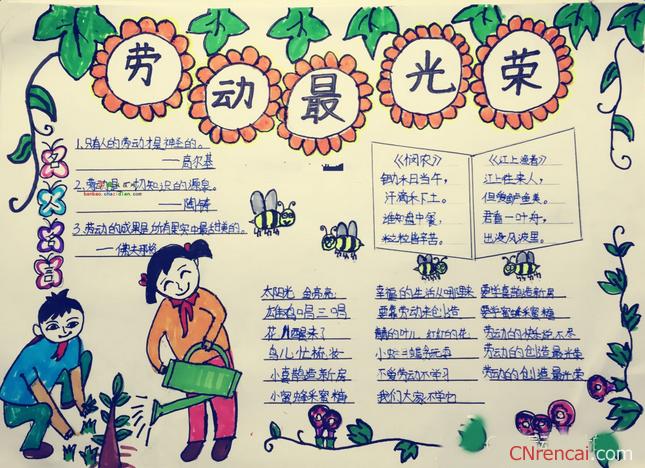 劳动最光荣
1.只有人的劳动才是神圣的。
——高尔基
2.劳动是一切知识的源泉。
banbao.chazidian.com
——陶铸
3.劳动的成果是所有果实中最甜美的。
——佛夫那格
名人名言
《悯农》
锄禾日当午，
汗滴禾下土。
谁知盘中餐，
粒粒皆辛苦。
《江上渔者》
江上往来人，
但爱鲈鱼美。
君看一叶舟，
出没风波里。
太阳光 金亮亮
雄鸡唱三唱
花儿醒来了
鸟儿忙梳妆
小喜鹊造新房
小蜜蜂采蜜糖
幸福的生活从哪里来
要靠劳动来创造
青青的叶儿 红红的花
小蝴蝶贪玩耍
不爱劳动不学习
我们大家不学它
要学喜鹊造新房
要学蜜蜂采蜜糖
劳动的快乐说不尽
劳动的创造最光荣
劳动的创造最光荣
CNrencai.com